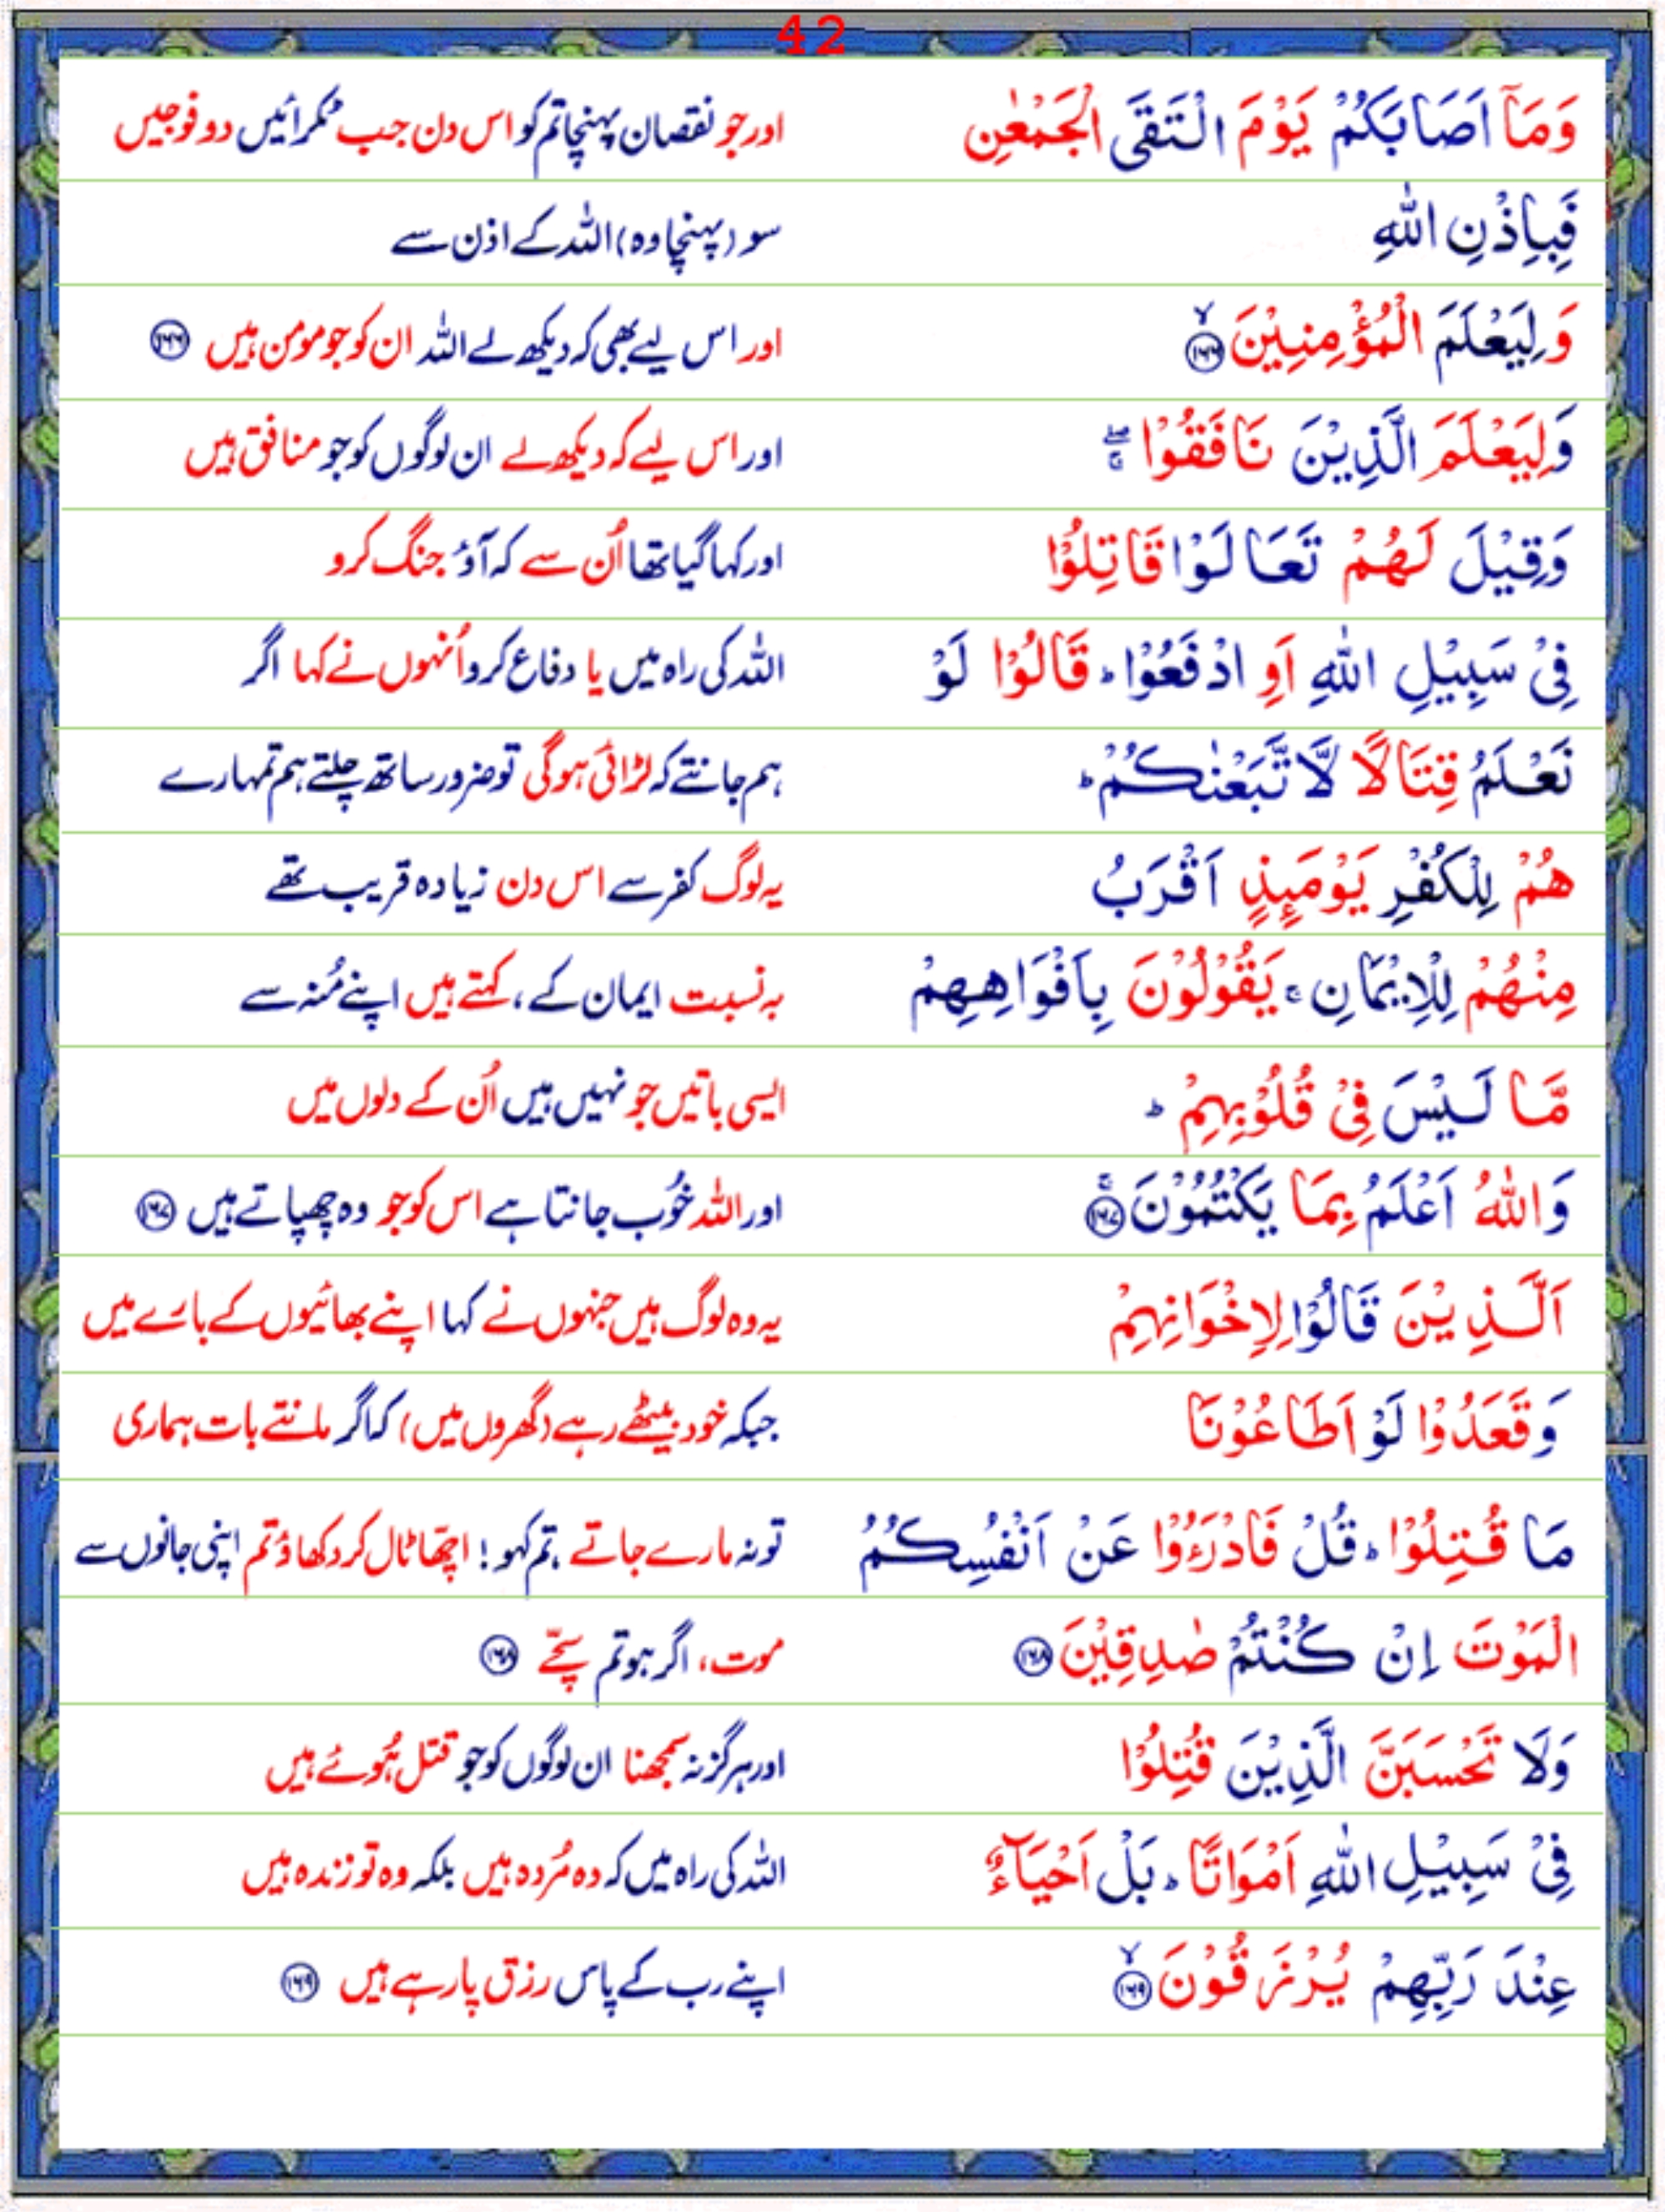 42
وَمَآ اَصَابَكُمْ يَوْمَ الْتَقَى الْجَمْعٰنِ اور جو نقصان پہنچا تم کو اس دن جب ٹکرائیں دو فوجیں
فَبِاِذْنِ اللّٰهِ سو (پہنچا وہ) اللہ کے اذن سے
وَلِيَعْلَمَ الْمُؤْمِنِيْنَ ۙ﴿۱۶۶﴾ اور اس لیے بھی کہ دیکھ لے اللہ ان کو جو مومن ہیں ﴿۱۶۶﴾
وَلِيَعْلَمَ الَّذِيْنَ نَافَقُوْا ۖۚ اور اس لیے کہ دیکھ لے ان لوگوں کو جو منافق ہیں
وَقِيْلَ لَهُمْ تَعَالَوْا قَاتِلُوْا اور کہا گیا تھا اُن سے کہ آؤ جنگ کرو
فِيْ سَبِيْلِ اللّٰهِ اَوِ ادْفَعُوْا ؕ قَالُوْا لَوْ اللہ کی راہ میں یا دفاع کرو اُنہوں نے کہا اگر
نَعْلَمُ قِتَالًا لَّا تَّبَعْنٰكُمْ ؕ ہم جانتے کہ لڑائی ہوگی تو ضرور ساتھ چلتے ہم تمہارے
هُمْ لِلْكُفْرِ يَوْمَىِٕذٍ اَقْرَبُ یہ لوگ کفر سے اس دن زیادہ قریب تھے
مِنْهُمْ لِلْاِيْمَانِ ۚ يَقُوْلُوْنَ بِاَفْوَاهِهِمْ بہ نسبت ایمان کے، کہتے ہیں اپنے مُنہ سے
مَّا لَيْسَ فِيْ قُلُوْبِهِمْ ؕ ایسی باتیں جو نہیں ہیں اُن کے دلوں میں
وَاللّٰهُ اَعْلَمُ بِمَا يَكْتُمُوْنَ ۚ﴿۱۶۷﴾ اور اللہ خُوب جانتا ہے اس کو جو وہ چھپاتے ہیں ﴿۱۶۷﴾
اَلَّذِيْنَ قَالُوْا لِاِخْوَانِهِمْ یہ وہ لوگ ہیں جنہوں نے کہا اپنے بھائیوں کے بارے میں
وَقَعَدُوْا لَوْ اَطَاعُوْنَا جبکہ خود بیٹھے رہے (گھروں میں) کہ اگر مانتے بات ہماری
مَا قُتِلُوْا ؕ قُلْ فَادْرَءُوْا عَنْ اَنْفُسِكُمُ تو نہ مارے جاتے، تم کہو! اچھّا ٹال کر دکھاؤ تم اپنی جانوں سے
الْمَوْتَ اِنْ كُنْتُمْ صٰدِقِيْنَ ﴿۱۶۸﴾ موت، اگر ہو تم سچّے ﴿۱۶۸﴾
وَلَا تَحْسَبَنَّ الَّذِيْنَ قُتِلُوْا اور ہرگز نہ سمجھنا ان لوگوں کو جو قتل ہُوئے ہیں
فِيْ سَبِيْلِ اللّٰهِ اَمْوَاتًا ؕ بَلْ اَحْيَآءٌ اللہ کی راہ میں کہ وہ مُردہ ہیں بلکہ وہ تو زندہ ہیں
عِنْدَ رَبِّهِمْ يُرْزَقُوْنَ ۙ﴿۱۶۹﴾ اپنے رب کے پاس رزق پارہے ہیں ﴿۱۶۹﴾